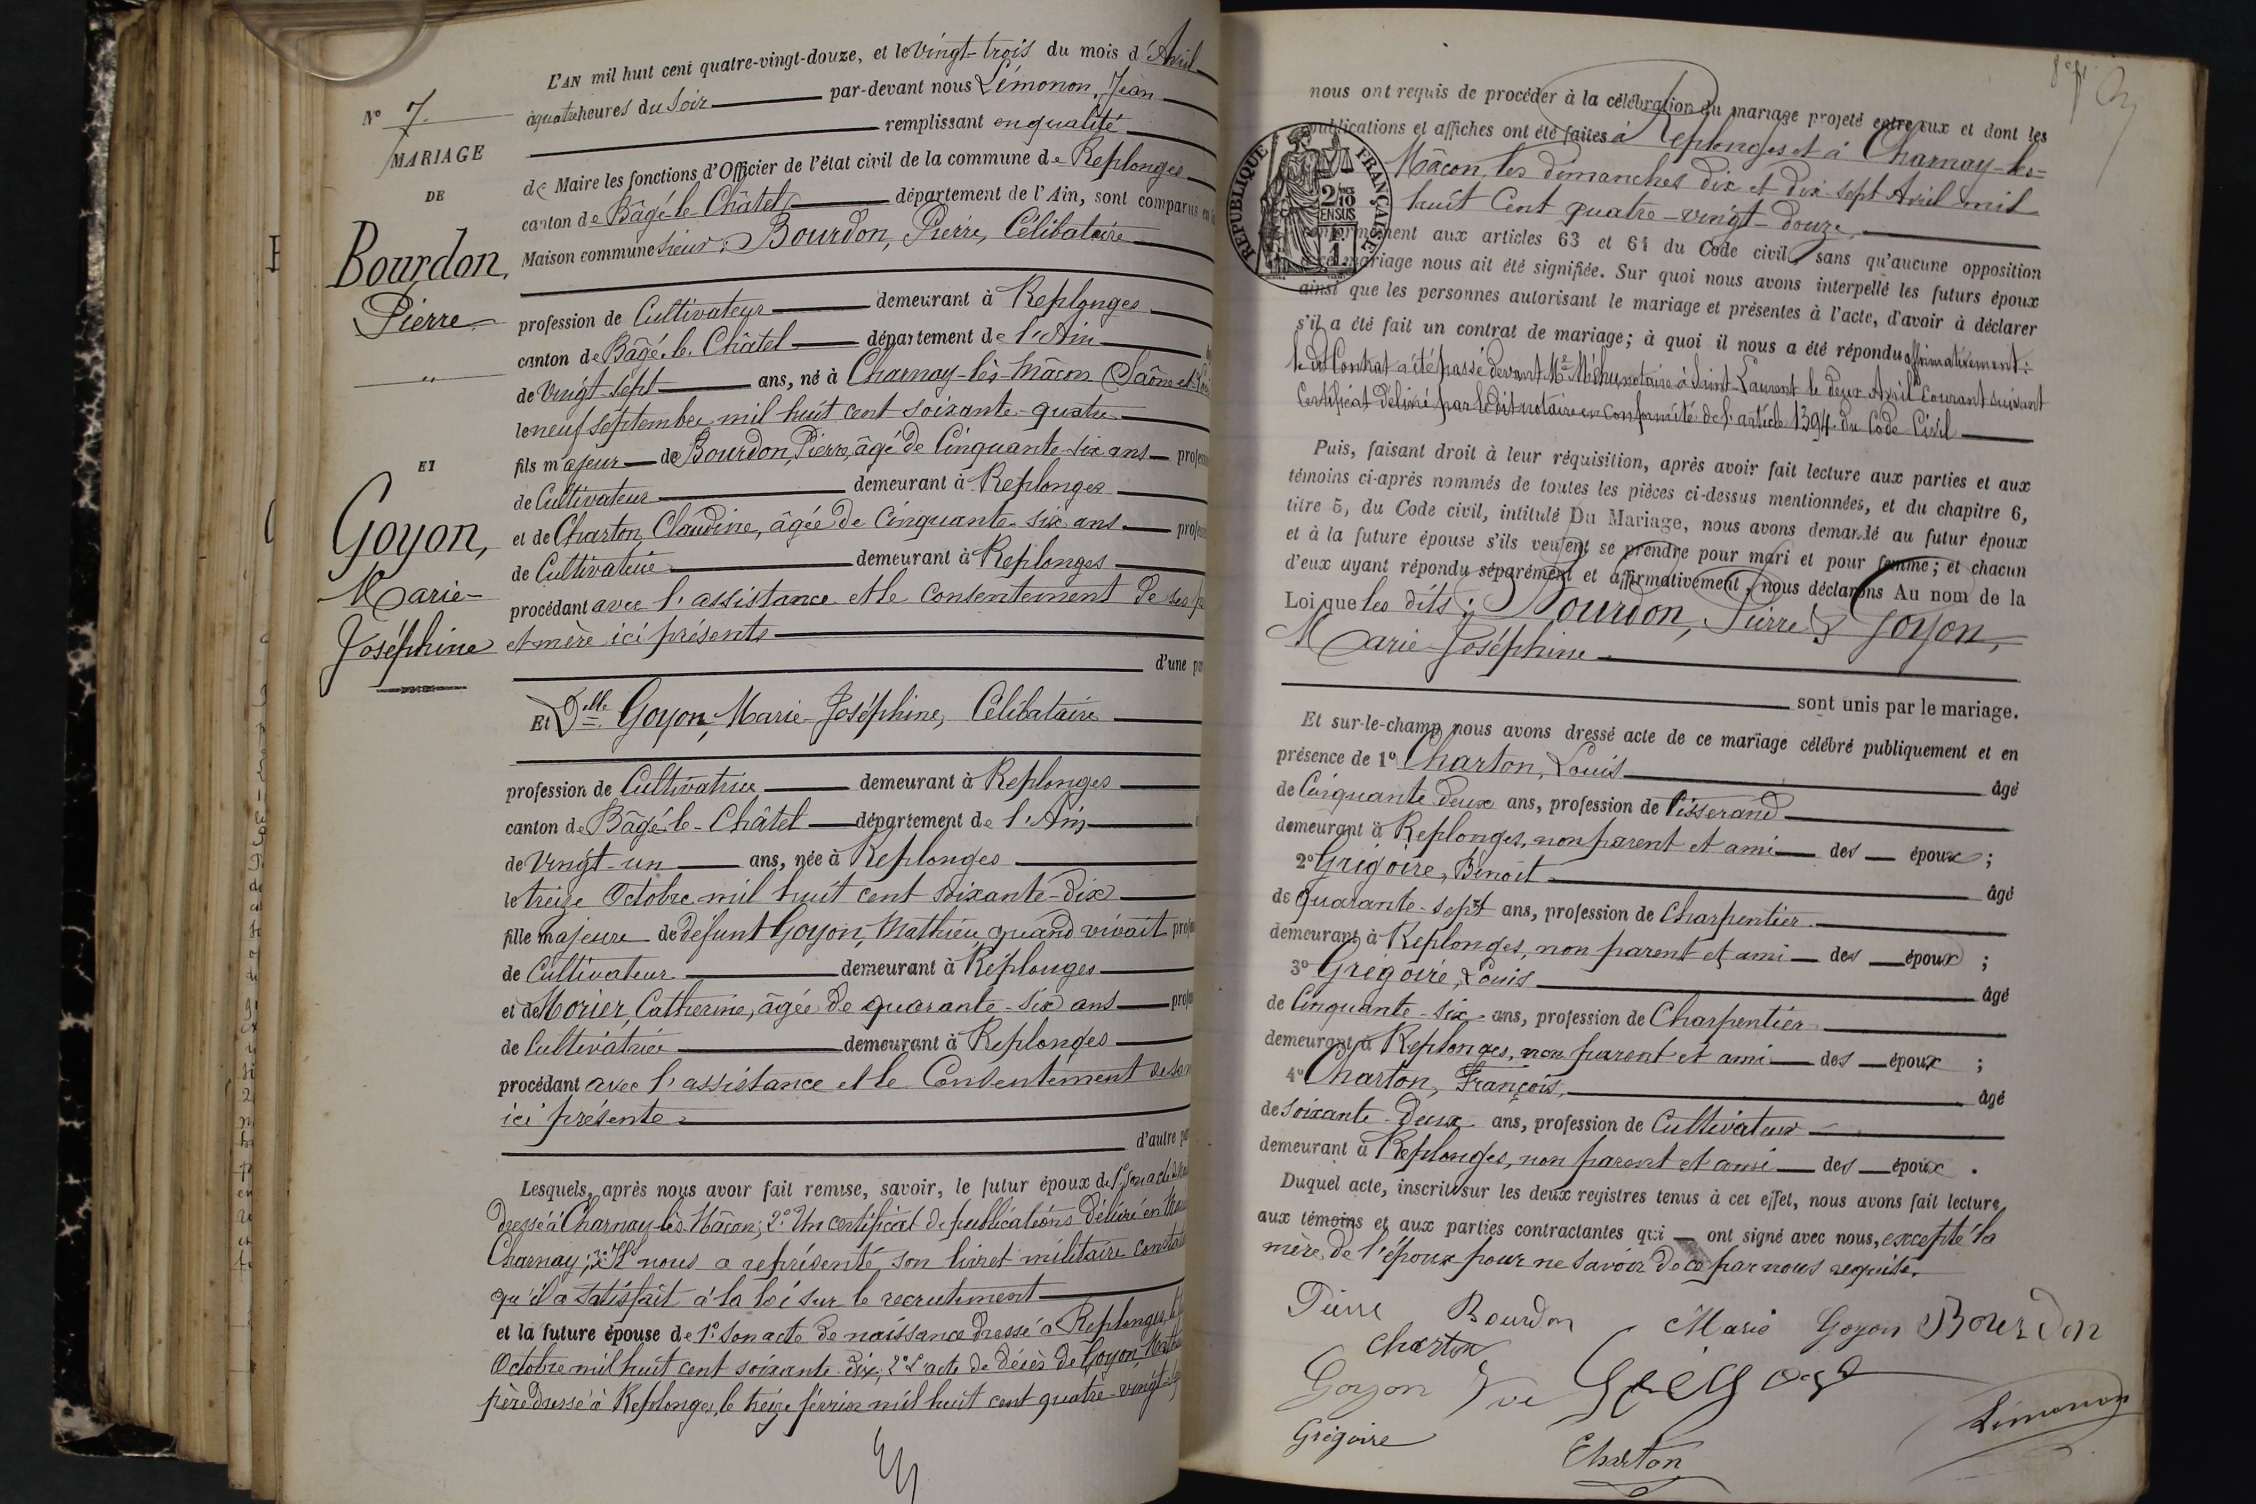 L'AN mil huit cent quatre-vingt-douze, et le vingt-trois du mois d'Avril
à quatre heures du Soir par-devant nous Limonon, Jean
remplissant en qualité
de Maire les fonctions d'Officier de l'état civil de la commune de Replonges
canton de Bâgé-le-Châtel département de l'Ain, sont comparus en la
Maison commune sieur : Bourdon, Pierre, Célibataire
profession de Cultivateur demeurant à Replonges
canton de Bâgé-le-Châtel département de l'Ain
de Vingt-sept ans, né à Charnay-lès-Mâcon (Saône et
le neuf septembre mil huit cent soixante-quatre
fils majeur de Bourdon, Pierre, âgé de Cinquante-six ans
de Cultivateur demeurant à Replonges
et de Charton, Claudine, âgée de Cinquante-six ans
de Cultivatrice demeurant à Replonges
procédant avec l'assistance et le consentement de ses
et mère ici présents
d'une
Et Delle Goyon, Marie-Joséphine, Célibataire
profession de Cultivatrice demeurant à Replonges
canton de Bâgé-le-Châtel département de l'Ain
de Vingt-un ans, née à Replonges
le treize Octobre mil huit cent soixante-dix
fille majeure de défunt Goyon, Mathieu, quand vivait
de Cultivateur demeurant à Replonges
et de Morier, Catherine, âgée de quarante-six ans
de Cultivatrice demeurant à Replonges
procédant avec l'assistance et le Consentement de sa
ici présente
d'autre
Lesquels, après nous avoir fait remise, savoir, le futur époux de 1° son acte de
dressé à Charnay-lès-Mâcon; 2° Un certificat de publications délivré en
Charnay; 3° Il nous a représenté son livret militaire
qu'il a satisfait à la loi sur le recrutement
et la future épouse de 1° son acte de naissance dressé à Replonges, le
Octobre mil huit cent soixante-dix; 2° L'acte de décès de Goyon,
père dressé à Replonges, le treize février mil huit cent quatre-vingt
N° 7
MARIAGE
DE
Bourdon,
Pierre
ET
Goyon,
Marie-
Joséphine
nous ont requis de procéder à la célébration du mariage projeté entre eux et dont les
publications et affiches ont été faites à Replonges et à Charnay-lès-
Mâcon, les dimanches dix et dix-sept Avril mil
huit Cent quatre-vingt-douze,
conformément aux articles 63 et 64 du Code civil, sans qu'aucune opposition
mariage nous ait été signifiée. Sur quoi nous avons interpellé les futurs époux
ainsi que les personnes autorisant le mariage et présentes à l'acte, d'avoir à déclarer
s'il a été fait un contrat de mariage; à quoi il nous a été répondu affirmativement:
le dit Contrat a été passé devant Me Méhu, notaire à Saint-Laurent le deux Avril Courant suivant
Certificat délivré par le dit notaire en conformité de l'article 1394 du Code Civil
RÉPUBLIQUE FRANÇAISE
2/10
EN SUS
Puis, faisant droit à leur réquisition, après avoir fait lecture aux parties et aux
témoins ci-après nommés de toutes les pièces ci-dessus mentionnées, et du chapitre 6,
titre 5, du Code civil, intitulé Du Mariage, nous avons demandé au futur époux
et à la future épouse s'ils veulent se prendre pour mari et pour femme; et chacun
d'eux ayant répondu séparément et affirmativement, nous déclarons Au nom de la
Loi que les dits : Bourdon, Pierre & Goyon,
Marie-Joséphine
sont unis par le mariage.
Et sur-le-champ nous avons dressé acte de ce mariage célébré publiquement et en
présence de 1° Charton, Louis âgé
de Cinquante-deux ans, profession de Tisserand
demeurant à Replonges, non parent et ami des époux;
2° Grégoire, Benoît âgé
de quarante-sept ans, profession de Charpentier
demeurant à Replonges, non parent et ami des époux;
3° Grégoire, Louis âgé
de Cinquante-six ans, profession de Charpentier
demeurant à Replonges, non parent et ami des époux;
4° Charton, François, âgé
de soixante-deux ans, profession de Cultivateur
demeurant à Replonges, non parent et ami des époux.
Duquel acte, inscrit sur les deux registres tenus à cet effet, nous avons fait lecture
aux témoins et aux parties contractantes qui ont signé avec nous, excepté la
mère de l'époux pour ne savoir de ce par nous requise.
Pierre Bourdon Marie Goyon Bourdon
Charton
Goyon Vve Grégoire
Limonon
Grégoire Charton